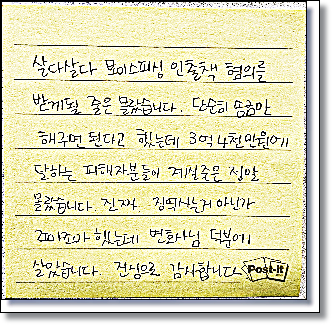 살다살다 보이스피싱 인출책 혐의를
받게될 줄은 몰랐습니다. 단순히 송금만
해주면 된다고 했는데 3억 4천만원에
달하는 피해자분들이 계실줄은 정말
몰랐습니다. 진짜. 징역사는거 아닌가
조마조마 했는데 변호사님 덕분에
살았습니다. 진심으로 감사합니다
Post-it